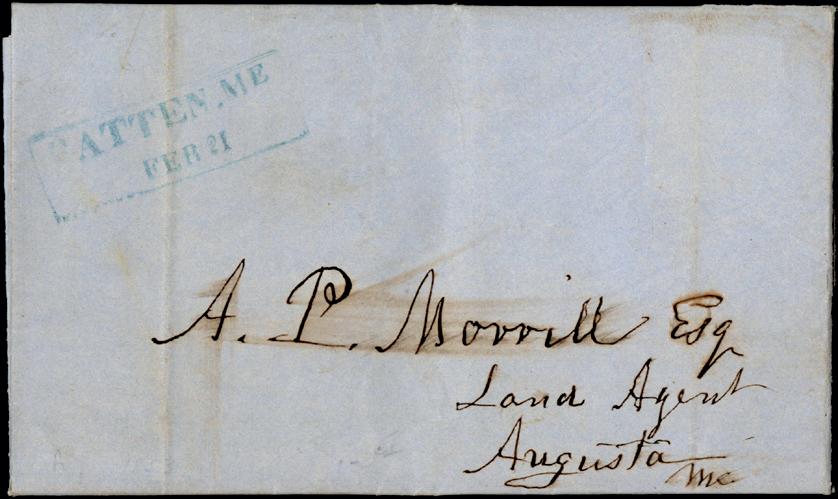 PATTEN, ME
FEB 21
A. P. Morrill Esq
Land Agent
Augusta Me